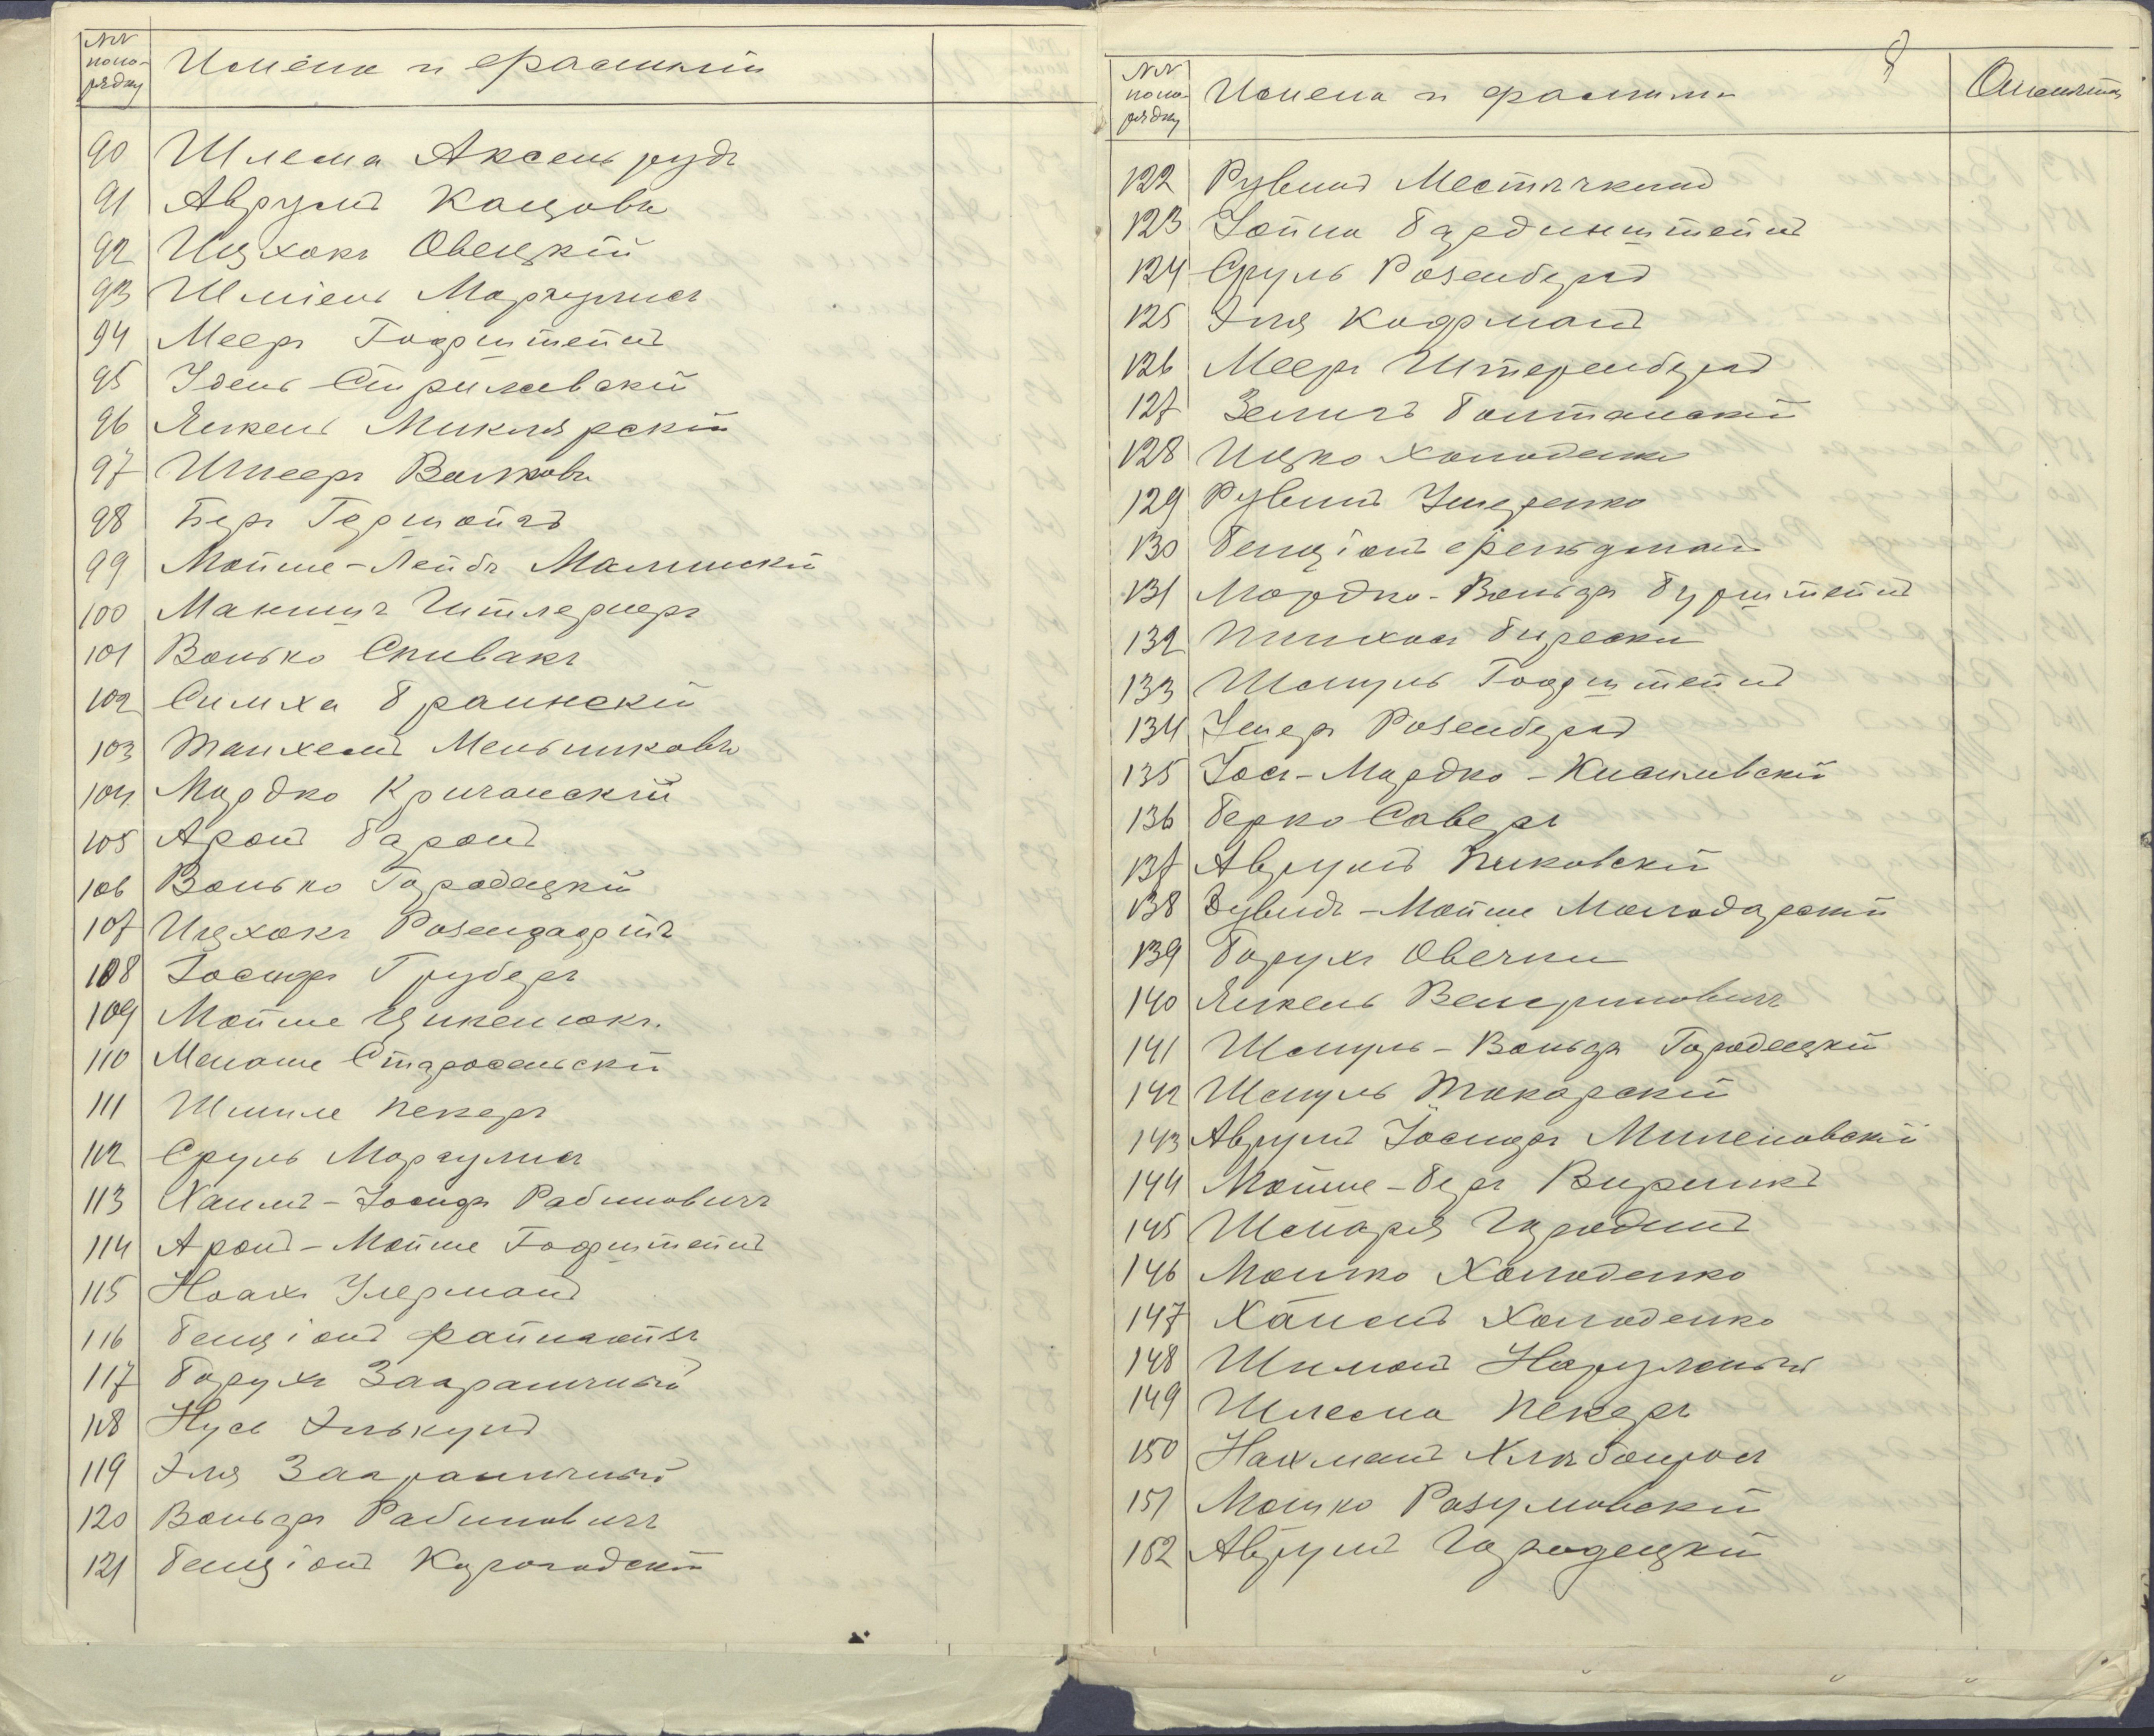 №№ по по-рядку
Имена и фамилій
90 Шлема Аксельрудъ
91 Аврумъ Кацовъ
92 Ицхокъ Овецкій
93 Шміель Маргулисъ
94 Мееръ Гофштейнъ
95 Удель Стрилевскій
96 Янкель Миклярскій
97 Шнееръ Волковъ
98 Беръ Гершойгъ
99 Мойше-Лейбъ Малинскій
100 Манишъ
101 Волько Спивакъ
102 Симха Браинскій
103 Танхемъ Меньшиковъ
104 Мордко Кричанскій
105 Аронъ Баронъ
106 Волько Городецкій
107 Ицхокъ
108 Іосифъ Груберъ
109 Мойше Цикенюкъ.
110 Менаше Старосельскій
111 Шмиле Пекеръ
112 Сруль Маргулисъ
113 Хаимъ-Іосифъ Рабиновичъ
114 Аронъ-Мойше Гофштейнъ
115 Ноахъ Улерманъ
116 Бенціонъ Файнгойзъ
117 Борухъ Заграничный
118 Нусь Элькунъ
119 Эля Заграничный
120 Вольфъ Рабиновичъ
121 Бенціонъ Курогодскій
8
№№ по по-рядку
Имена и фамилии
122 Рувинъ Местечкинъ
123 Іойна Бардинштейнъ
124 Сруль Розенбергъ
125 Эля Кофманъ
126 Мееръ Штеренбергъ
127 Зелигъ Болтанскій
128 Ицко Холоденко
129 Рувинъ Ушеренко
130 Бенціонъ Фельдманъ
131 Мордко-Вольфъ Бурштейнъ
132 Пинхосъ
133 Шмуль Гофштейнъ
134 Ушеръ Розенбергъ
135 Іось-Мордко-Кисилевскій
136 Берко Саверъ
137 Аврумъ Пиковскій
138 Дувидъ-Мойше Молодарскій
139 Борухъ Овечкин
140 Янкель Венгриновичъ
141 Шмуль-Вольфъ Городецкій
142 Шмуль Токарскій
143 Аврумъ Іосифъ Миленовскій
144 Мойше-Беръ Вирникъ
145 Шмарія Городинъ
146 Мошко Холоденко
147 Хаимъ Холоденко
148 Шимонъ
149 Шлема Пекеръ
150 Нахманъ
151 Мошко Разумовскій
152 Аврумъ Городецкій